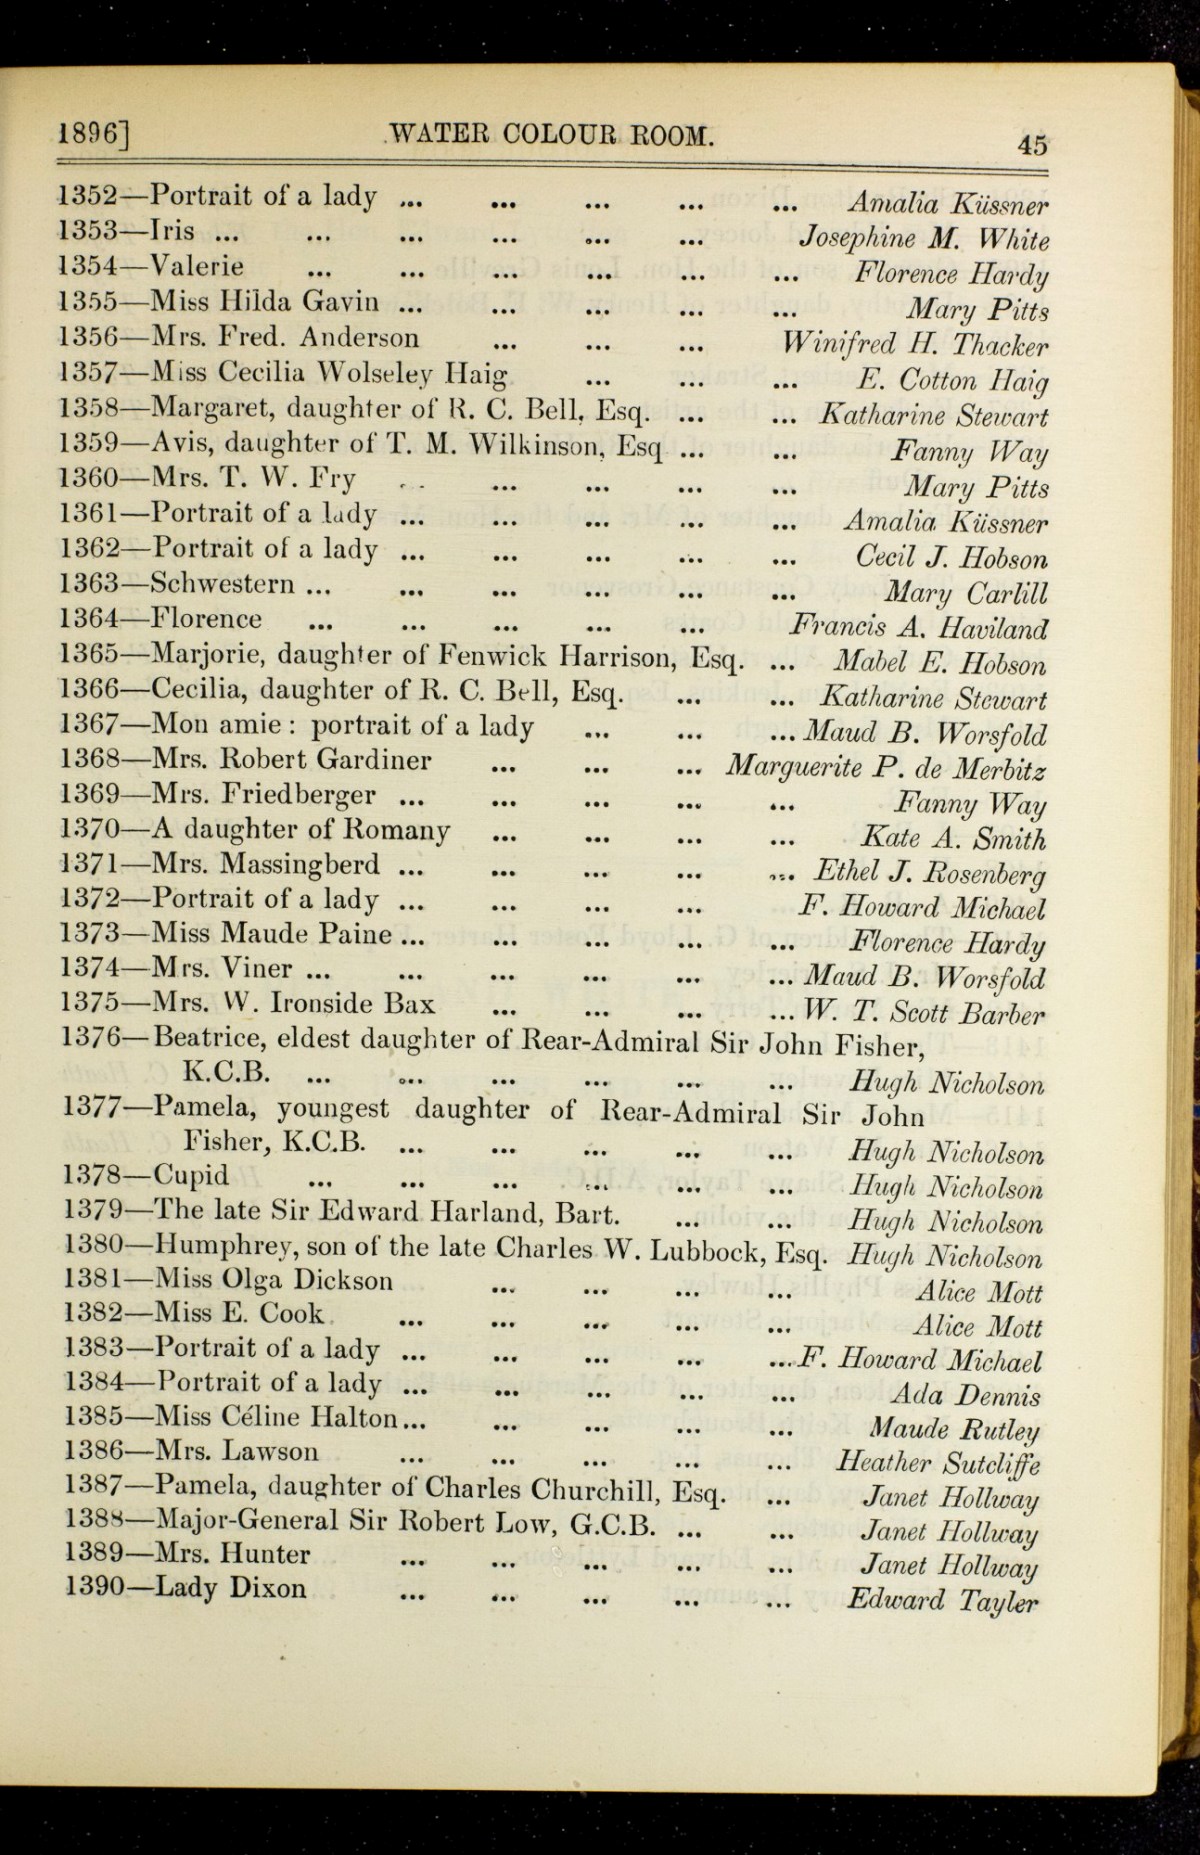 1896] WATER COLOUR ROOM. 45
1352—Portrait of a lady ... ... ... ... ... Amalia Küssner
1353—Iris ... ... ... ... ... ... Josephine M. White
1354—Valerie ... ... ... ... ... ... Florence Hardy
1355—Miss Hilda Gavin ... ... ... ... ... Mary Pitts
1356—Mrs. Fred. Anderson ... ... ... Winifred H. Thacker
1357—Miss Cecilia Wolseley Haig ... ... ... E. Cotton Haig
1358—Margaret, daughter of R. C. Bell, Esq. ... ... Katharine Stewart
1359—Avis, daughter of T. M. Wilkinson, Esq ... ... Fanny Way
1360—Mrs. T. W. Fry ... ... ... ... ... Mary Pitts
1361—Portrait of a lady ... ... ... ... ... Amalia Küssner
1362—Portrait of a lady ... ... ... ... ... Cecil J. Hobson
1363—Schwestern ... ... ... ... ... ... Mary Carlill
1364—Florence ... ... ... ... ... Francis A. Haviland
1365—Marjorie, daughter of Fenwick Harrison, Esq. ... Mabel E. Hobson
1366—Cecilia, daughter of R. C. Bell, Esq. ... ... Katharine Stewart
1367—Mon amie : portrait of a lady ... ... ... Maud B. Worsfold
1368—Mrs. Robert Gardiner ... ... ... Marguerite P. de Merbitz
1369—Mrs. Friedberger ... ... ... ... ... Fanny Way
1370—A daughter of Romany ... ... ... ... Kate A. Smith
1371—Mrs. Massingberd ... ... ... ... ... Ethel J. Rosenberg
1372—Portrait of a lady ... ... ... ... F. Howard Michael
1373—Miss Maude Paine ... ... ... ... ... Florence Hardy
1374—Mrs. Viner ... ... ... ... ... ... Maud B. Worsfold
1375—Mrs. W. Ironside Bax ... ... ... ... W. T. Scott Barber
1376—Beatrice, eldest daughter of Rear-Admiral Sir John Fisher,
K.C.B. ... ... ... ... ... ... Hugh Nicholson
1377—Pamela, youngest daughter of Rear-Admiral Sir John
Fisher, K.C.B. ... ... ... ... ... Hugh Nicholson
1378—Cupid ... ... ... ... ... ... Hugh Nicholson
1379—The late Sir Edward Harland, Bart. ... ... Hugh Nicholson
1380—Humphrey, son of the late Charles W. Lubbock, Esq. Hugh Nicholson
1381—Miss Olga Dickson ... ... ... ... Alice Mott
1382—Miss E. Cook ... ... ... ... ... Alice Mott
1383—Portrait of a lady ... ... ... ... ...F. Howard Michael
1384—Portrait of a lady ... ... ... ... ... Ada Dennis
1385—Miss Céline Halton... ... ... ... ... Maude Rutley
1386—Mrs. Lawson ... ... ... ... ... Heather Sutcliffe
1387—Pamela, daughter of Charles Churchill, Esq. ... Janet Hollway
1388—Major-General Sir Robert Low, G.C.B. ... ... Janet Hollway
1389—Mrs. Hunter ... ... ... ... ... Janet Hollway
1390—Lady Dixon ... ... ... ... ... Edward Tayler